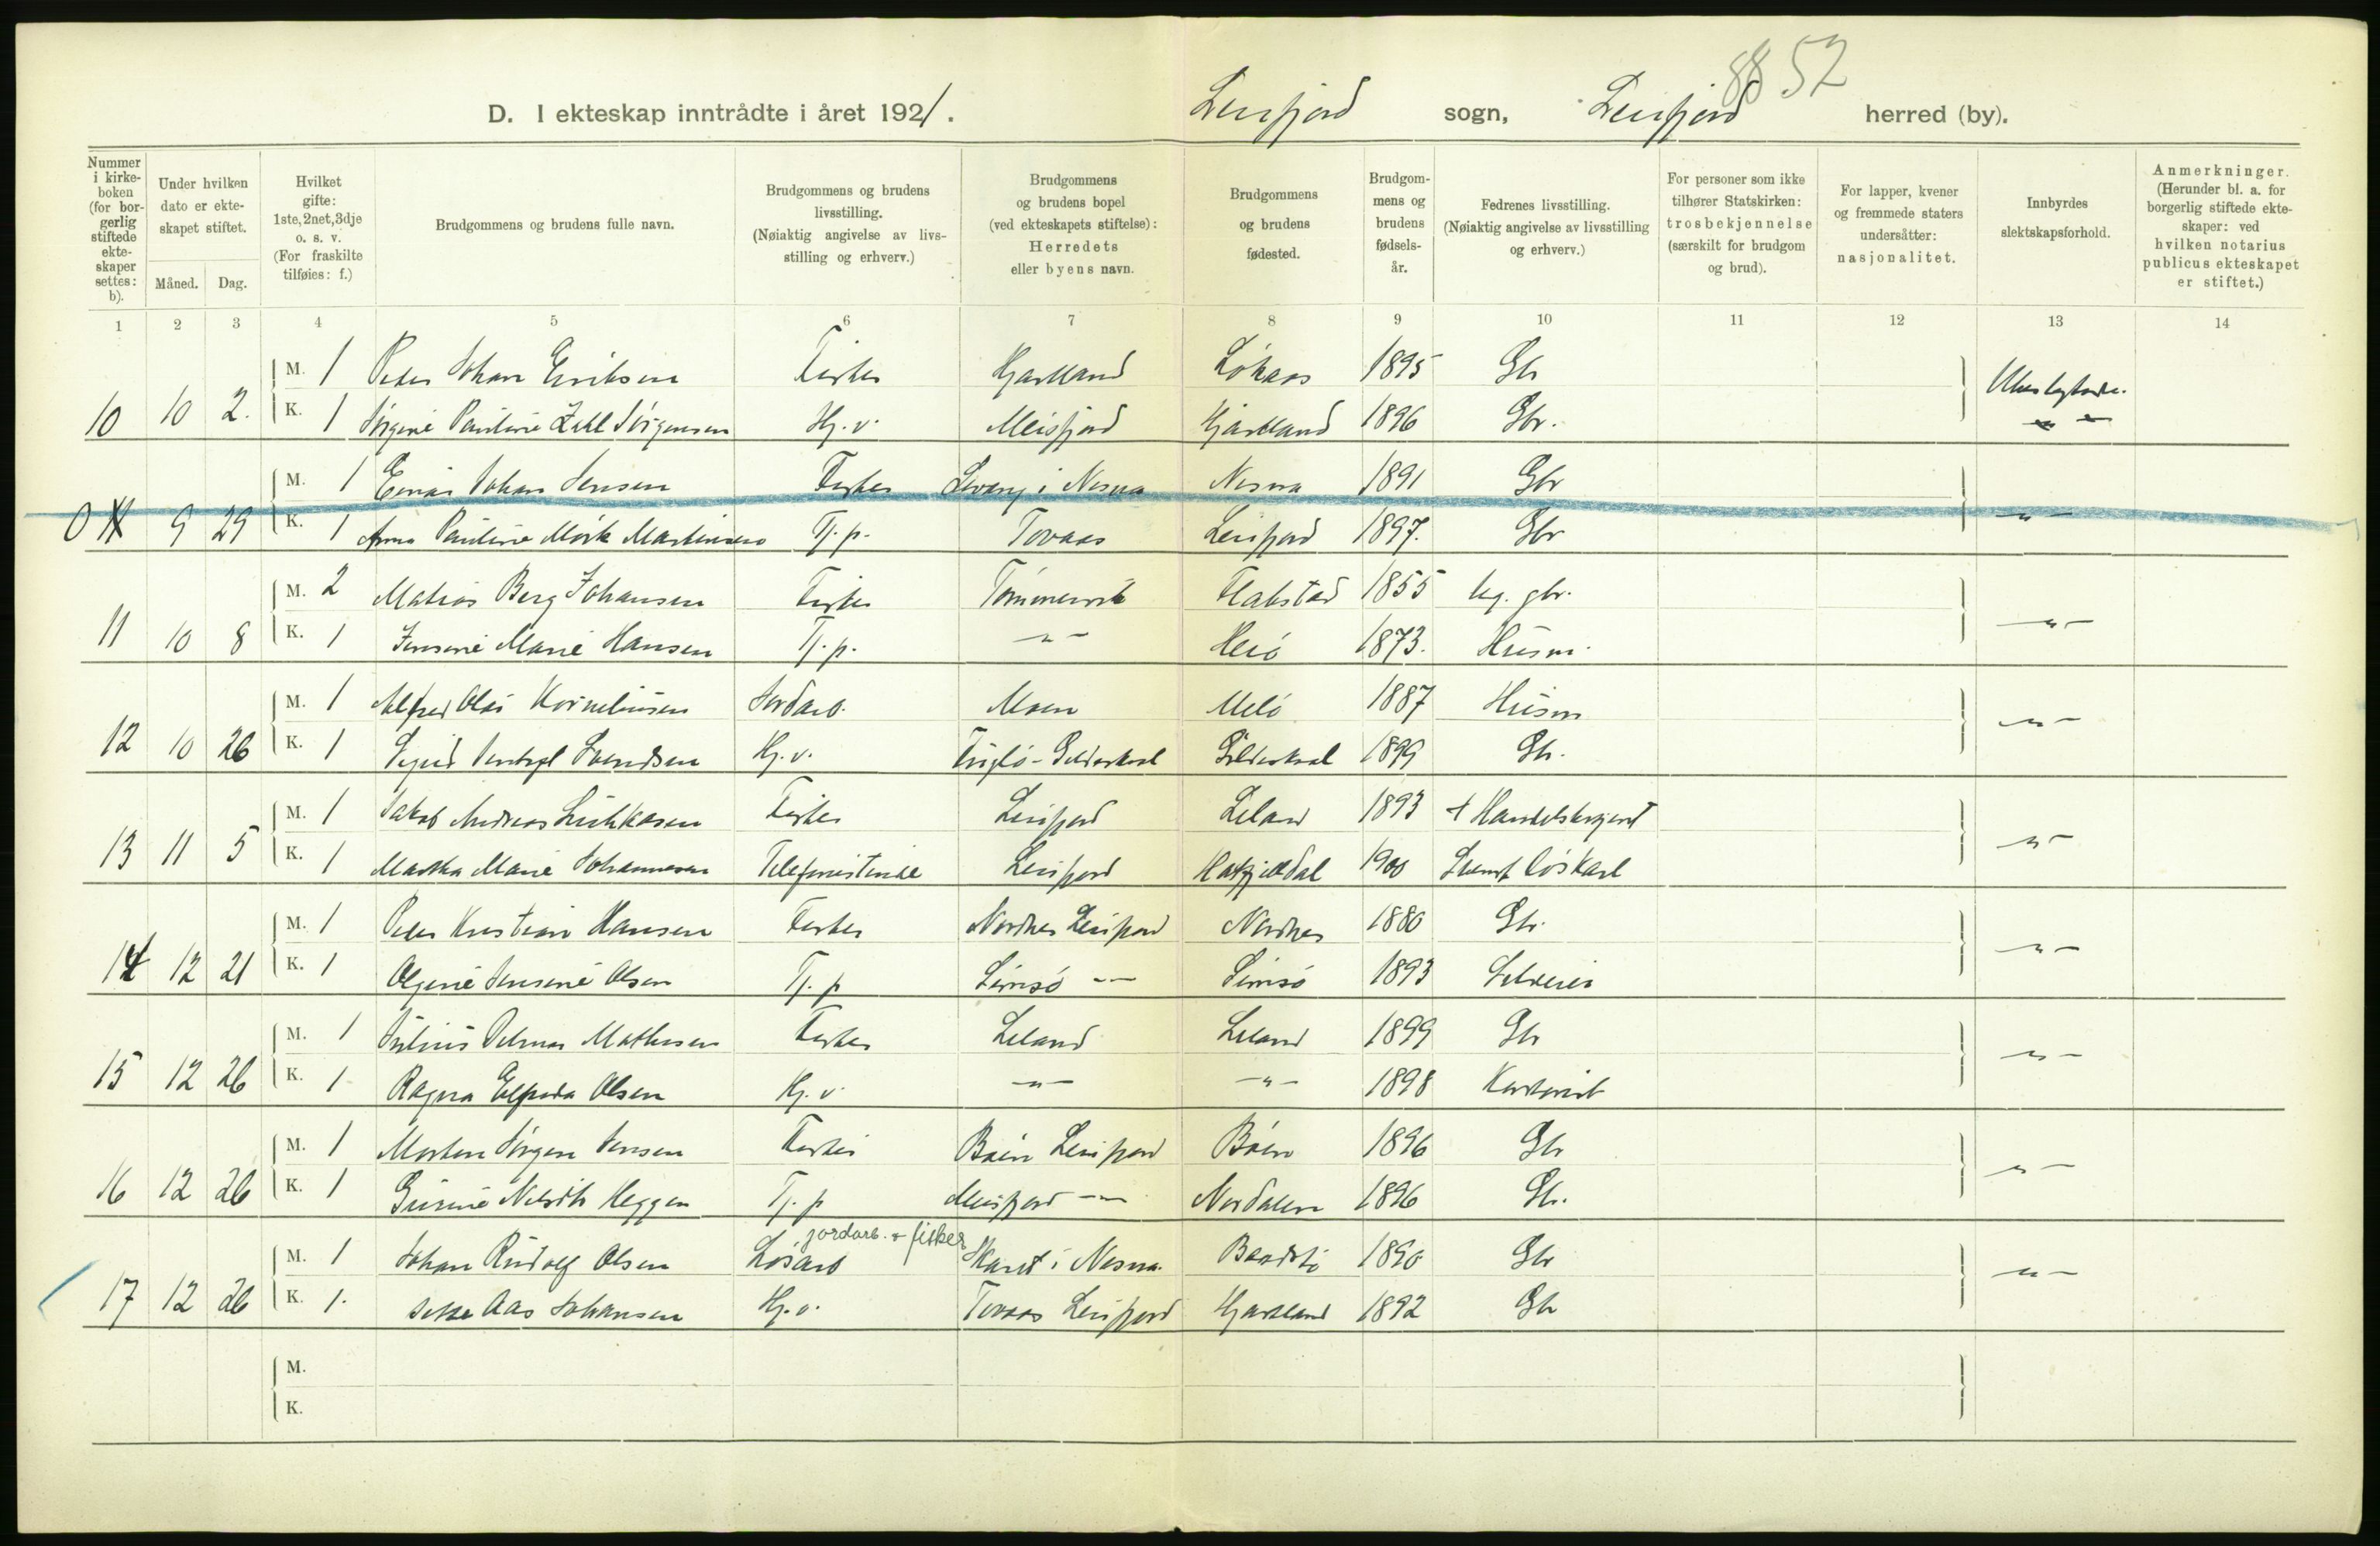 8852
D. I ekteskap inntrådte i året 1921. Leirfjord sogn, Leirfjord herred (by).
Nummer i kirkeboken (for borgerlig stiftede ekteskaper settes: b).
Under hvilken dato er ekteskapet stiftet.
Måned. Dag.
Hvilket gifte: 1ste, 2net, 3dje o. s. v. (For fraskilte tilføies: f.)
Brudgommens og brudens fulle navn.
Brudgommens og brudens livsstilling. (Nøiaktig angivelse av livsstilling og erhverv.)
Brudgommens og brudens bopel (ved ekteskapets stiftelse): Herredets eller byens navn.
Brudgommens og brudens fødested.
Brudgommens og brudens fødselsår.
Fedrenes livsstilling. (Nøiaktig angivelse av livsstilling og erhverv.)
For personer som ikke tilhører Statskirken: trosbekjennelse (særskilt for brudgom og brud).
For lapper, kvener og fremmede staters undersåtter: nasjonalitet.
Innbyrdes slektskapsforhold.
Anmerkninger. (Herunder bl. a. for borgerlig stiftede ekteskaper: ved hvilken notarius publicus ekteskapet er stiftet.)
1 2 3 4 5 6 7 8 9 10 11 12 13 14
M. 1 Peder Johan Eriksen Fisker Hjartland 1895 Gbr
10 10 2. K. 1 Jørgine Pauline Zahl Jørgensen Hj. v. Meisfjord Hjartland 1896 Gbr. " –
M. 1 Einar Johan Jensen Fisker i Nesna Nesna 1891 Gbr
0 11 9 29 K. 1 Anna Pauline Mørk Martinsen Tj. p. Tovaas Leirfjord 1897. Gbr – " –
M. 2 Matias Berg Johansen Fisker Tømmervik Flakstad 1855 gbr.
11 10 8 K. 1 Jensine Marie Hansen Tj. p. – " – Herø 1873. Husm. – " –
M. 1 Alfred Olai Korneliussen Jordarb. Moen Melø 1887 Husm
12 10 26 K. 1 Sigrid Svendsen Hj. v. Fuglø - Gildeskaal Gildeskaal 1899 Gbr. – " –
M. 1 Jakob Andreas Fisker Leirfjord Leland 1893 +
13 11 5 K. 1 Martha Marie Johannesen Telefonistinde Leirfjord Hakjeldal 1900 – " –
M. 1 Peder Kristian Hansen Fisker Nordnes Leirfjord Nordnes 1880 Gbr.
14 12 21 K. 1 Olgine Jensine Olsen Tj. p Simsø – " – Simsø 1893 Selveier – " –
M. 1 Julius Mathisen Fisker Leland Leland 1899 Gbr
15 12 26 K. 1 Ragna Elfrida Olsen Hj. v. – " – – " – 1898 – " –
M. 1 Morten Jørgen Jensen Fisker Baen Leirfjord Baen 1896 Gbr
16 12 26 K. 1 Heggen Tj. p Meisfjord – " – Nordalen 1896 Gbr. – " –
jordarb. + fisker
M. 1 Johan Rudolf Olsen Løsarb i Nesna 1890 Gbr
17 12 26 K. 1. Aas Johansen Hj. v. Tovaas Leirfjord Hjartland 1892 Gbr – " –
M.
K.